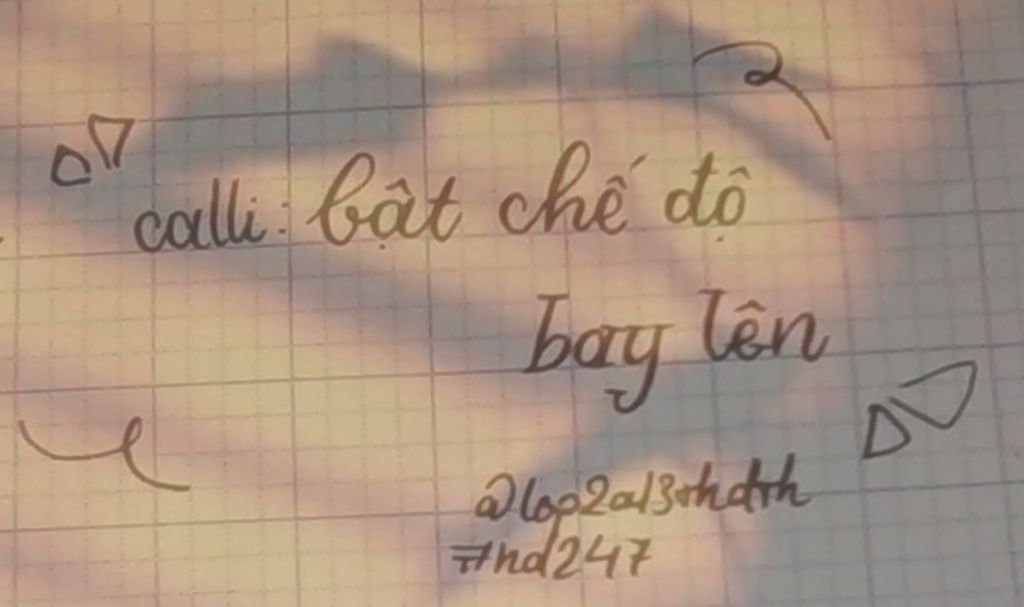 calli: bật chế độ
bay lên
@lop2a13thdth
#hd247